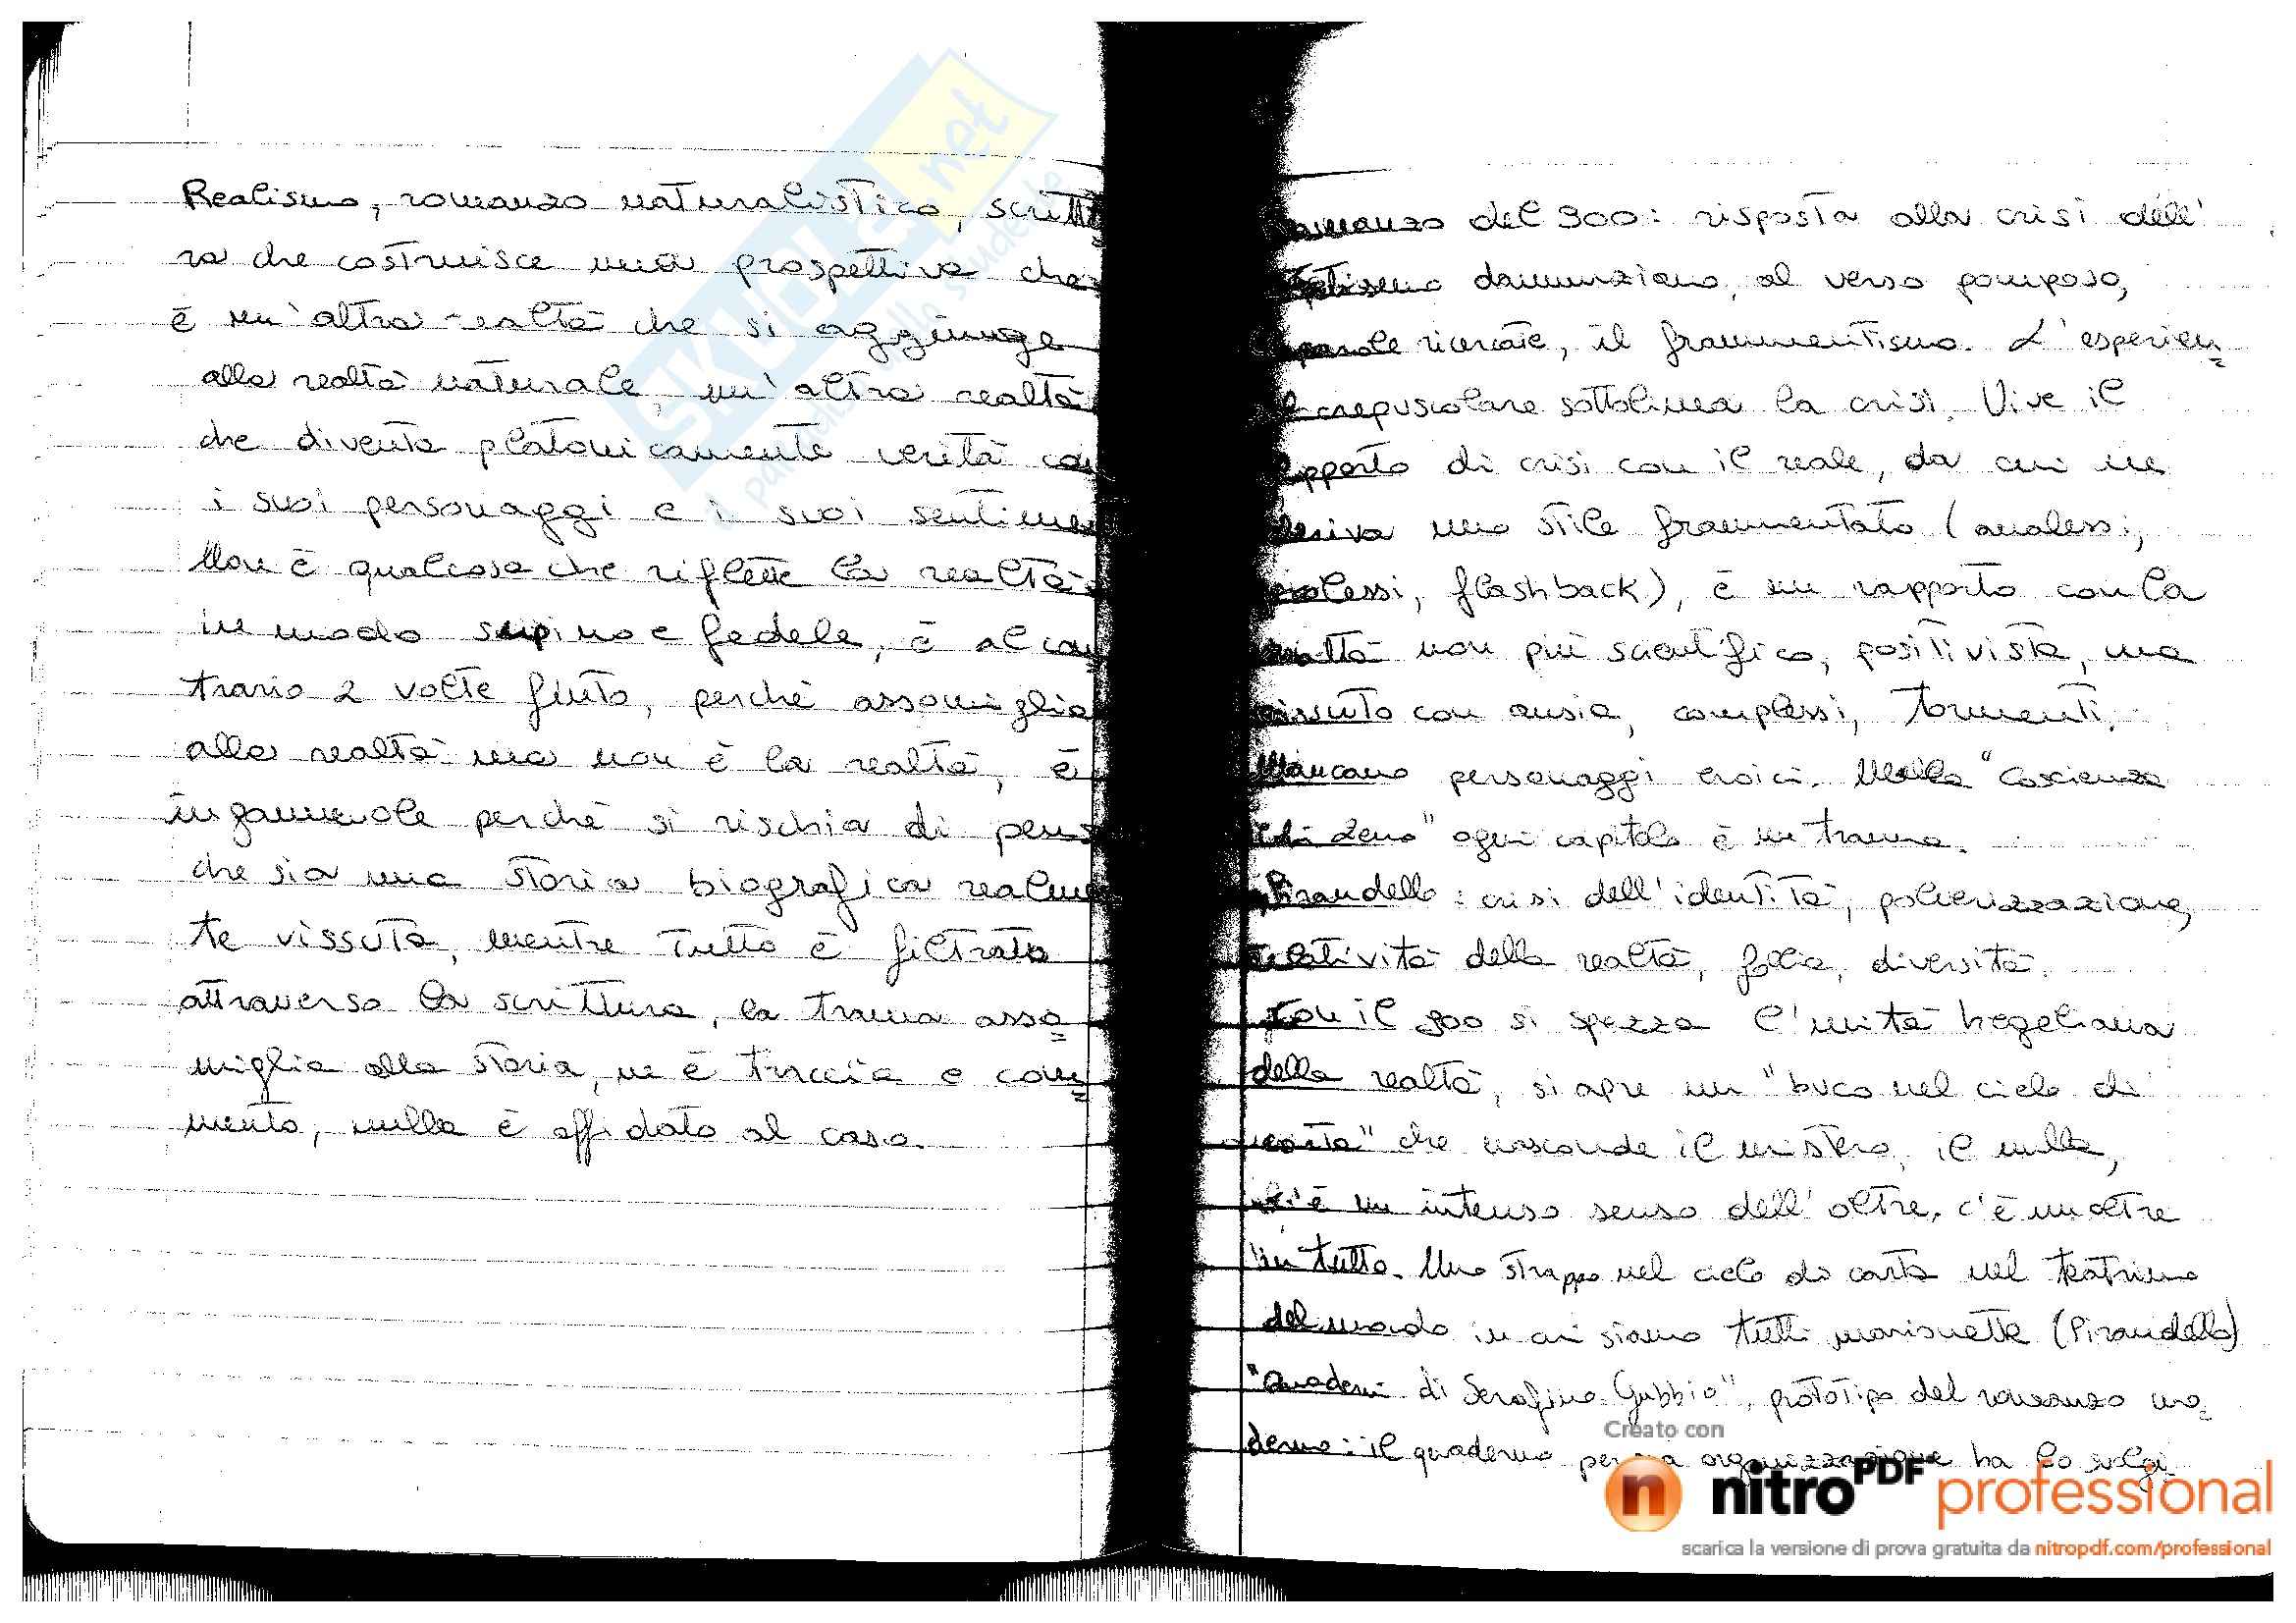 Realismo, romanzo naturalistico, scrittu=
ra che costruisce una prospettiva che
è un'altra realtà che si aggiunge
alla realtà naturale, un'altra realtà
che diventa platonicamente verità con
i suoi personaggi e i suoi sentimen
Non è qualcosa che riflette la realtà
in modo supino e fedele, è al con
trario 2 volte finto, perché assomiglia
alla realtà ma non è la realtà, è
ingannevole perché si rischia di pens
che sia una storia biografica realmen
te vissuta, mentre tutto è filtrato
attraverso la scrittura, la trama asso=
miglia alla storia, ne è traccia e com=
mento, nulla è affidato al caso.
Romanzo del 900: risposta alla crisi dell'
dannunziano, al verso pomposo,
parole ricercate, il frammentismo. L'esperien=
crepuscolare sottolinea la crisi. Vive il
rapporto di crisi con il reale, da cui ne
deriva uno stile frammentato (analessi,
prolessi, flashback), è un rapporto con la
realtà non più scientifico, positivista, ma
vissuto con ansia, complessi, tormenti.
Mancano personaggi eroici. Nella "Coscienza
di Zeno" ogni capitolo è un trauma.
Pirandello: crisi dell'identità, polverizzazione,
relatività della realtà, follia, diversità.
Con il 900 si spezza l'unità hegeliana
della realtà, si apre un "buco nel cielo di
carta" che nasconde il mistero, il nulla,
c'è un intenso senso dell'oltre, c'è un oltre
in tutto. Uno strappo nel cielo di carta nel teatrino
del mondo in cui siamo tutti marionette (Pirandello)
"Quaderni di Serafino Gubbio", prototipo del romanzo mo=
derno: il quaderno per sua organizzazione ha lo svolgi
SKUOLA.net
Creato con
nitroPDF professional
scarica la versione di prova gratuita da nitropdf.com/professional